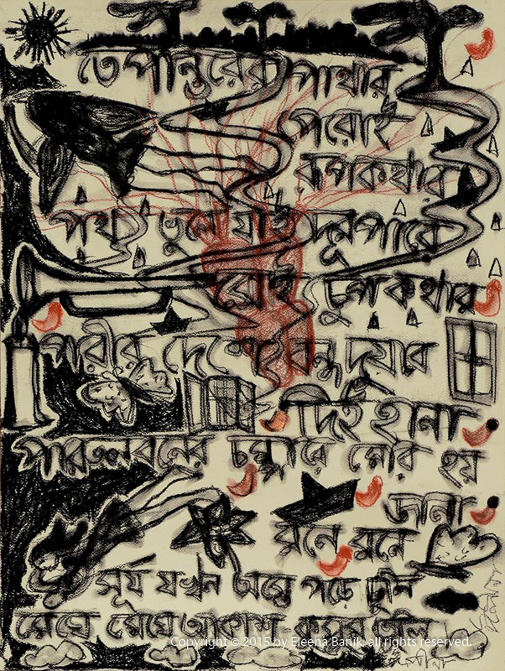 তেপান্তরের পাথার
পেরোই
রূপকথার
পথ ভুলে যাই দূরপারে
চুপকথার
পরীর বন্ধ দুয়ার
দিই হানা
পারুলবনের চম্পারে মোর হয়
জানা
মনে মনে
সূর্য যখন অস্তে পড়ে ঢুলি
মেঘে মেঘে আকাশ কুসুম তুলি
Copyright © 2015 by Eleena Banik, all rights reserved.